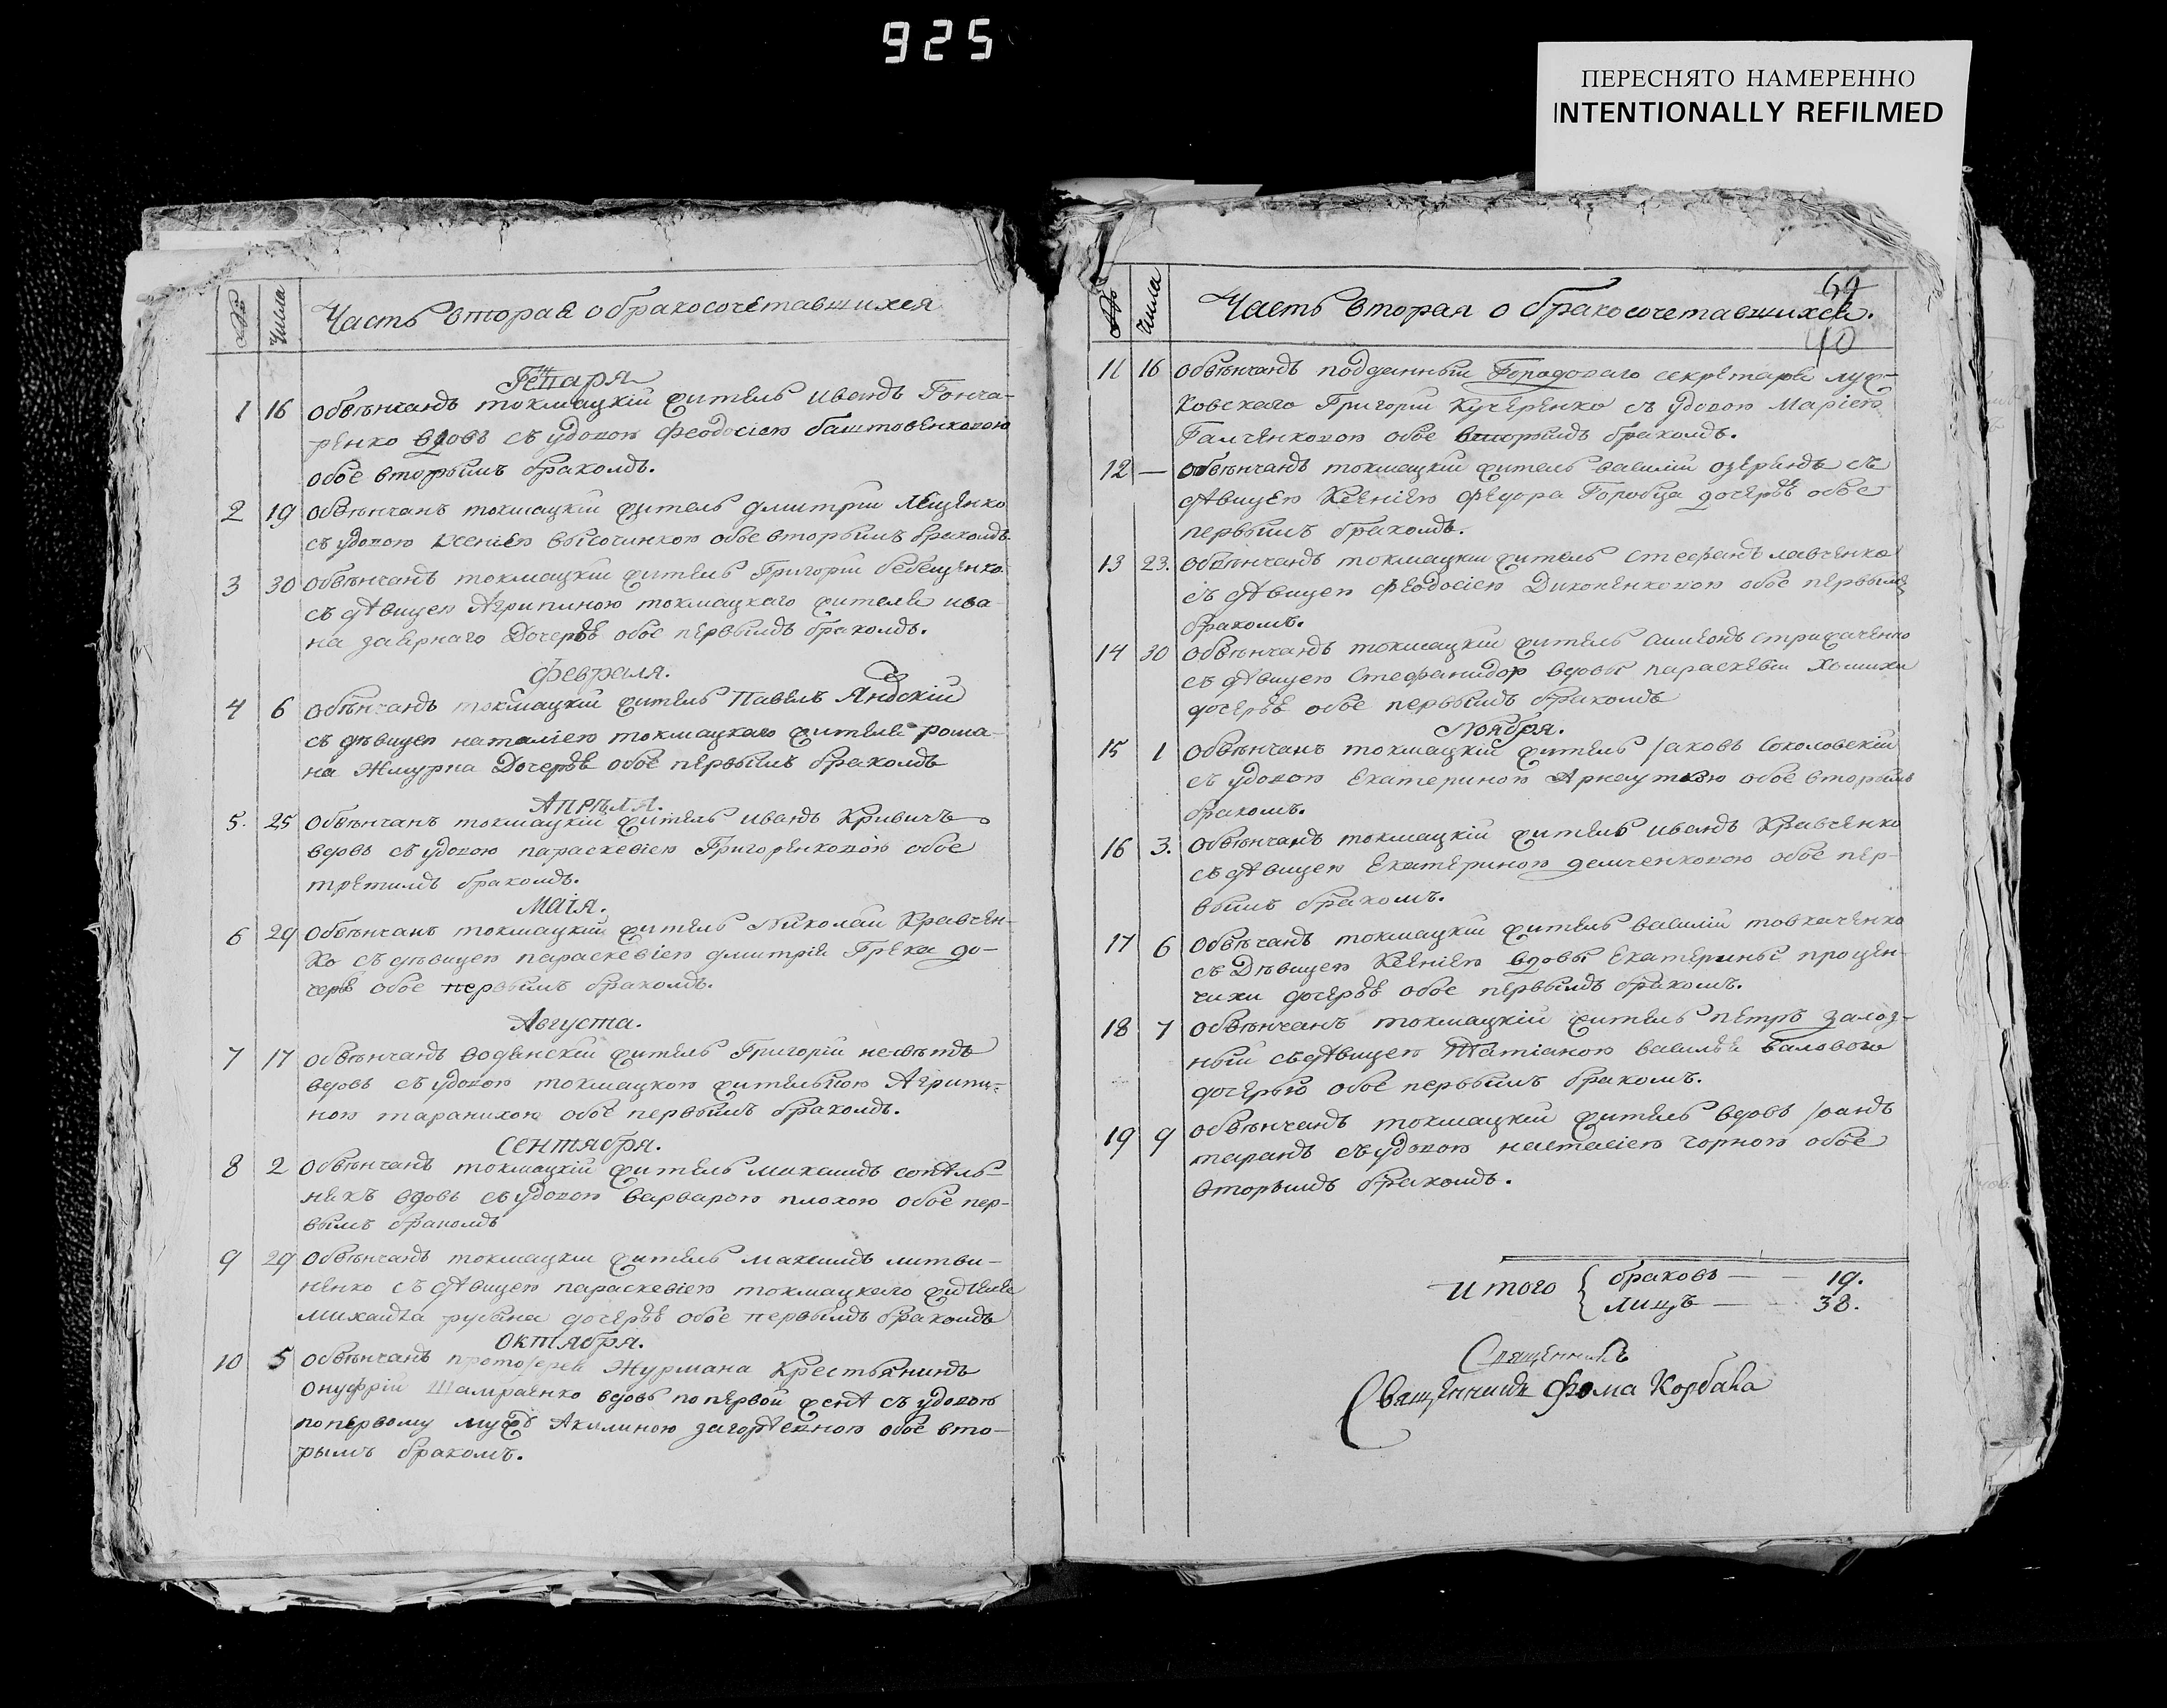 925
ПЕРЕСНЯТО НАМЕРЕННО
INTENTIONALLY REFILMED
№ Числа Часть вторая о бракосочетавшихся
Генаря
1 16 Обвѣнчанъ токмацкій житель иванъ Гонча-
ренко вдовъ съ удовою Феодосіею баштовенковою
обое вторымъ бракомъ.
2 19 Обвѣнчанъ токмацкій житель дмитрій Лещенко
съ удовою ксеніею высочинкою обое вторымъ бракомъ.
3 30 Обвѣнчанъ токмацкій житель Григорій бебещенко
съ дѣвицею Агрипиною токмацкаго жителя ива-
на заярнаго Дочерѣю обое первымъ бракомъ.
Февраля.
4 6 Обвѣнчанъ токмацкій житель Павелъ Яновскій
съ дѣвицею наталіею токмацкаго жителя рома-
на Жмурка Дочерѣю обое первымъ бракомъ
Апрѣля.
5. 25 Обвѣнчанъ токмацкій житель иванъ Кривичъ
вдовъ съ удовою параскевіею Григоренковою обое
третимъ бракомъ.
Маія.
6 29 Обвѣнчанъ токмацкій житель Николай Кравчен-
ко съ дѣвицею параскевіею дмитрія Грека до-
черѣю обое первымъ бракомъ.
Августа.
7 17 Обвѣнчанъ водянскій житель Григорій
вдовъ съ удовою токмацкою жительною Агрипи-
ною таранихою обое первымъ бракомъ.
Сентября.
8 2 Обвѣнчанъ токмацкій житель михаилъ сопѣль-
никъ вдовъ съ удовою варварою плохою обое пер-
вымъ бракомъ
9 29 Обвѣнчанъ токмацкій житель максимъ литви-
ненко съ дѣвицею параскевіею токмацкаго жителя
михаила рубана дочерѣю обое первымъ бракомъ
Октября.
10 5 Обвѣнчанъ протоіерея Журмана Крестьянинъ
Онуфрій Шамраенко вдовъ по первой женѣ съ удовою
по первому мужѣ Акилиною обое вто-
рымъ бракомъ.
№ Числа Часть вторая о бракосочетавшихся.
69
40
11 16 Обвѣнчанъ подданный Городоваго секретаря
ковскаго Григорій Кучеренко съ удовою Маріею
Галченковою обое вторымъ бракомъ.
12 — Обвѣнчанъ токмацкій житель василій озерянъ съ
дѣвицею Ксеніею Федора Горобца дочерѣю обое
первымъ бракомъ.
13 23. Обвѣнчанъ токмацкій житель стефанъ лавченко
съ дѣвицею Феодосіею Диконенковою обое первымъ
бракомъ.
14 30 Обвѣнчанъ токмацкій житель симеонъ стрихаченко
съ дѣвицею Стефанидою вдовы параскевіи Хомихи
дочерѣю обое первымъ бракомъ
Ноября.
15 1 Обвѣнчанъ токмацкій житель Іаковъ соколовскій
съ удовою Екатериною Арнауткою обое вторымъ
бракомъ.
16 3. Обвѣнчанъ токмацкій житель иванъ Кравченко
съ дѣвицею Екатериною демченковою обое пер-
вымъ бракомъ.
17 6 Обвѣчанъ токмацкій житель василій товкаченко
съ Дѣвицею Ксеніею вдовы Екатерины процен-
чихи дочерѣю обое первымъ бракомъ.
18 7 Обвѣнчанъ токмацкій житель петръ залоз-
ный съ дѣвицею Татіаною василія балового
дочерью обое первымъ бракомъ.
19 9 Обвѣнчанъ токмацкій житель вдовъ Іоанъ
таранъ съ удовою настасіею чорною обое
вторымъ бракомъ.
Итого { браковъ — — 19.
лицъ — — 38.
Священникъ
Священникъ Фома Корбана